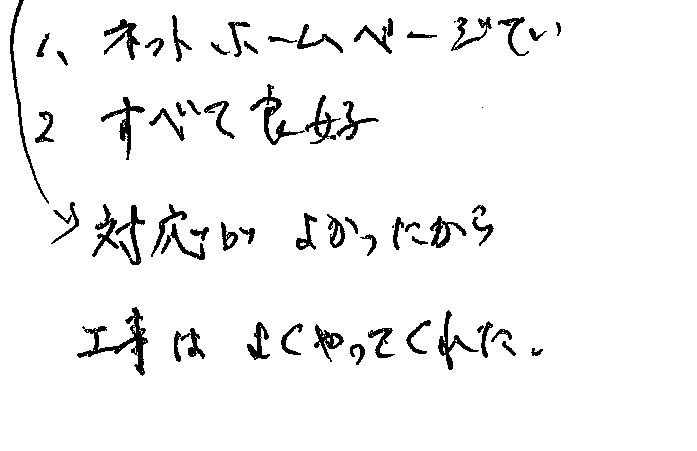 1、ネットホームページでい
2 すべて良好
対応が よかったから
工事は よくやってくれた。